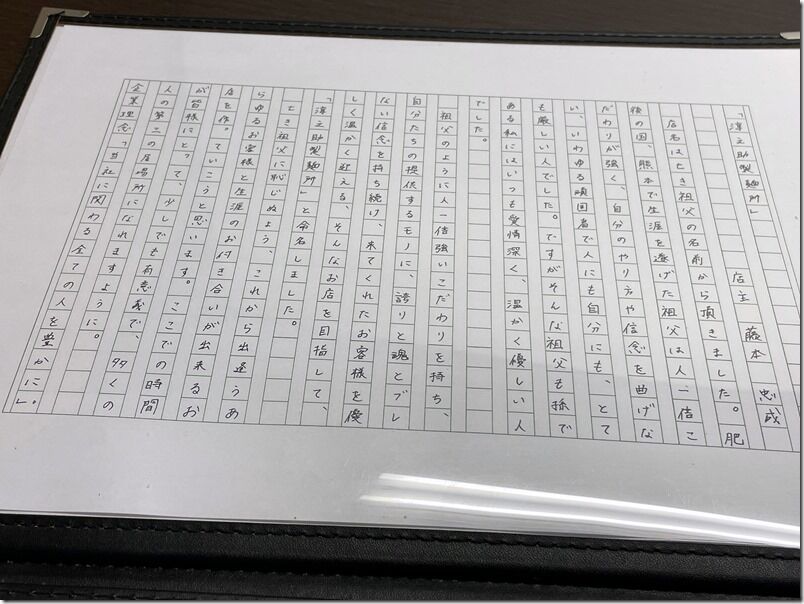 「淳之助製麺所」 店主 藤本 忠成
店名は亡き祖父の名前から頂きました。肥
後の国、熊本で生涯を遂げた祖父は人一倍こ
だわりが強く、自分のやり方や信念を曲げな
い、いわゆる頑固者で人にも自分にも、とて
も厳しい人でした。ですがそんな祖父も孫で
ある私にはいつも愛情深く、温かく優しい人
でした。
祖父のように人一倍強いこだわりを持ち、
自分たちの提供するモノに、誇りと魂とブレ
ない信念を持ち続け、来てくれたお客様を優
しく温かく迎える、そんなお店を目指して、
「淳之助製麺所」と命名しました。
亡き祖父に恥じぬよう、これから出逢うあ
らゆるお客様と生涯のお付き合いが出来るお
店を作っていこうと思います。ここでの時間
が皆様にとって、少しでも有意義で、多くの
人の第二の居場所になれますように。
企業理念「当社に関わる全ての人を豊かに」。